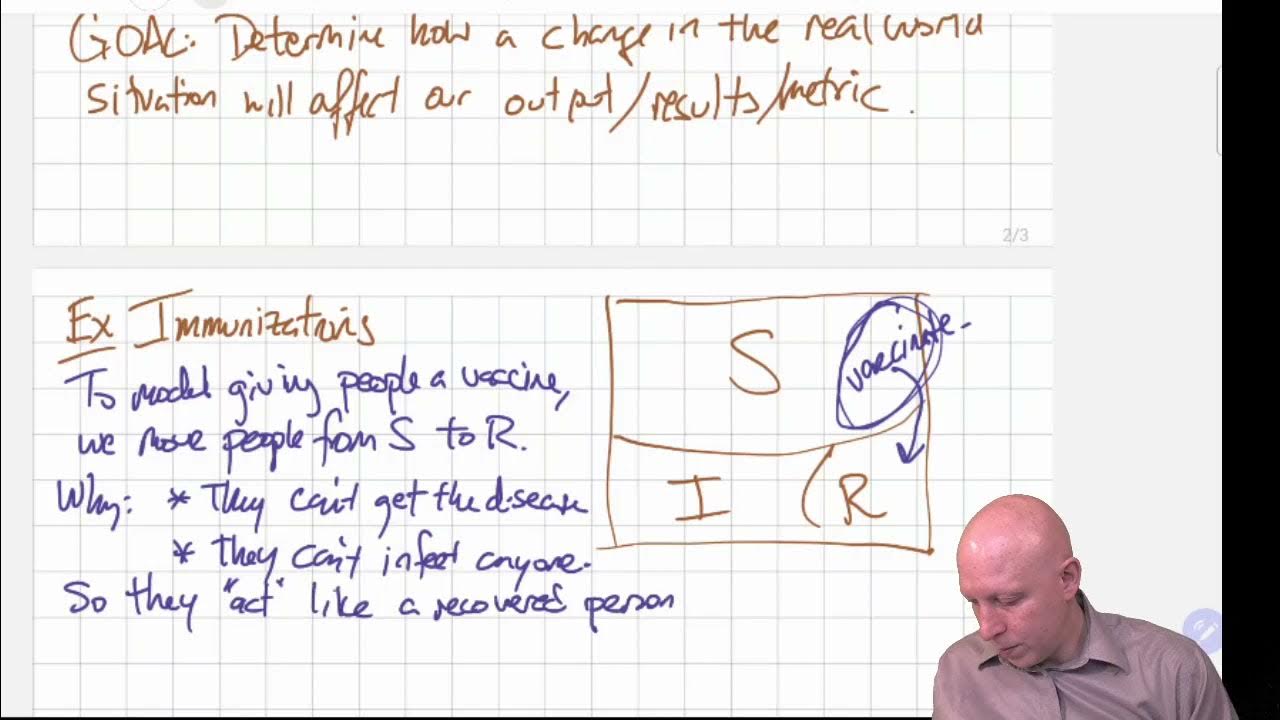 GOAL: Determine how a change in the real world
situation will affect our output/results/metric.
2/3
Ex Immunizations
To model giving people a vaccine,
we move people from S to R.
Why: * They can't get the disease
* they can't infect anyone.
So they "act" like a recovered person
S
vaccinate
I
R